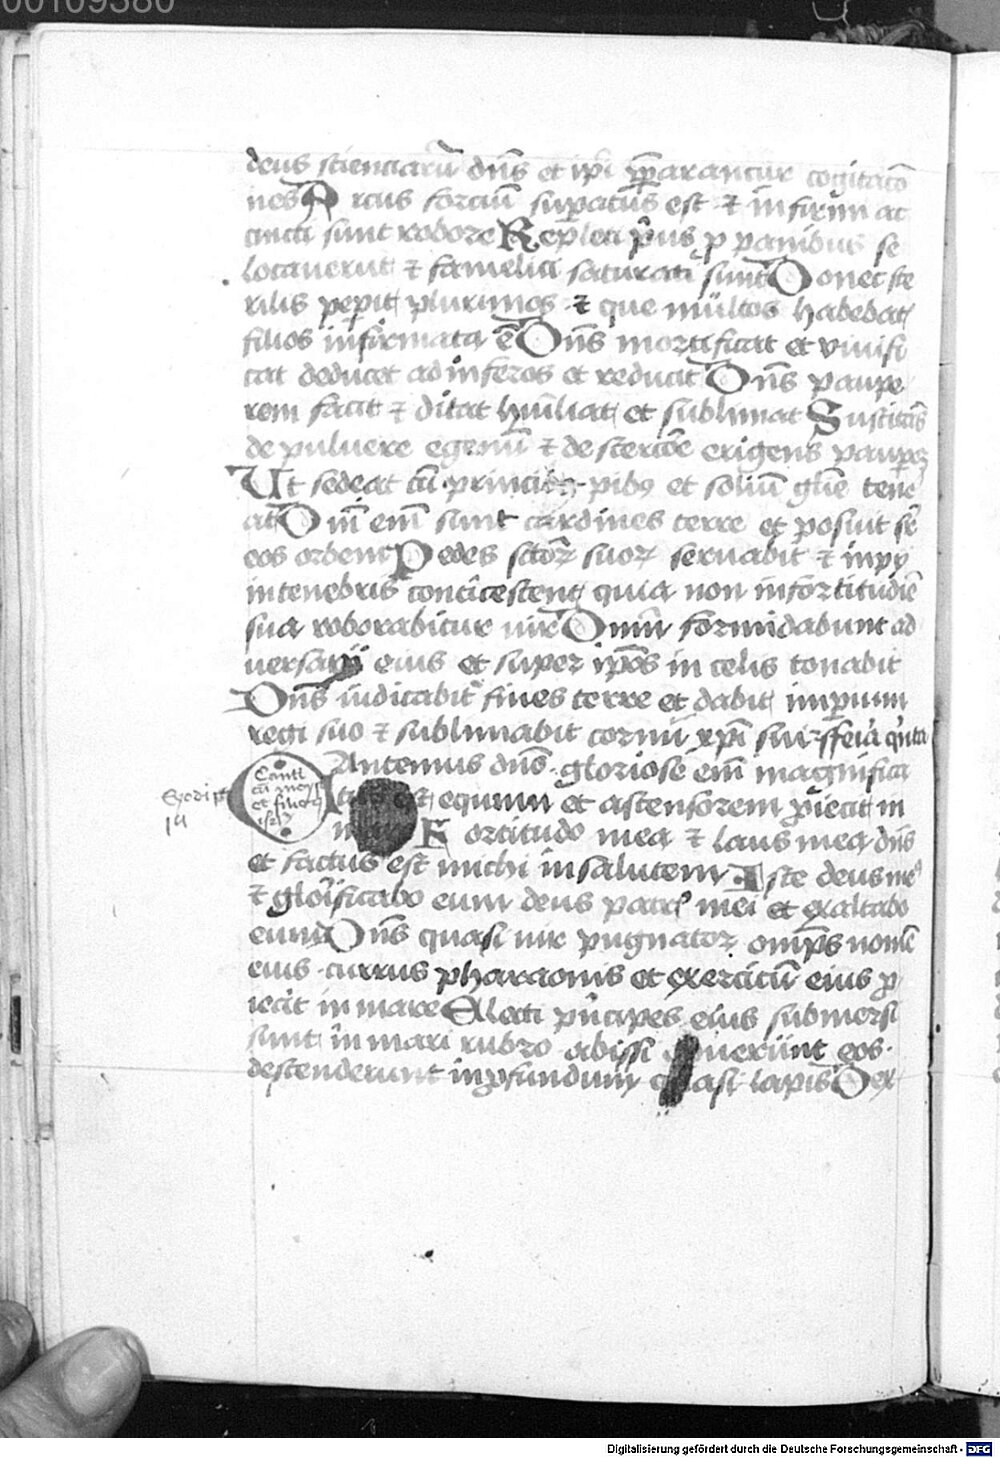 00109380
deus scienciarū dn̄s et ip̄i p̄parantur cogitacō
nes Arcus forciū sup̲atus est ⁊ infirmi ac
cincti sunt robore Repleti p̄us p̲ panibus se
locaverunt ⁊ famelici saturati sunt Donec ste
rilis pep̲it plurimos ⁊ que multos habebat
filios infirmata ē Dn̄s mortificat et vivifi
cat deducit ad inferos et reducit Dn̄s paupe
rem facit ⁊ ditat humiliat et sublimat Suscitās
de pulvere egenū ⁊ de stercore erigens paupeꝝ
Ut sedeat cū princi pibꝰ et soliū gl̄ie tene
at Dn̄i em̄ sunt cardines terre et posuit sr̄
eos orbem Pedes sctōꝝ suoꝝ servabit ⁊ impij
in tenebris conticescent quia non in fortitudīe
sua roborabitur vir Dn̄m formidabunt ad
versarij eius et super ip̄os in celis tonabit
Dn̄s iudicabit fines terre et dabit imp̲ium
regi suo ⁊ sublimabit cornu xp̄i sui ffeīa q̄nta
Cantemus dn̄o gloriose em̄ magnifica
Canti
cū moysi
et filioꝝ
isrl
Exodi
tus est equum et ascensorem p̲iecit in
Fortitudo mea ⁊ laus mea dn̄s
et factus est michi in salutem Iste deus meꝰ
⁊ glorificabo eum deus patris mei et exaltabo
eum Dn̄s quasi vir pugnator omp̄s nomē
eius currus pharaonis et exercitū eius p̲
iecit in mare Electi p̄ncipes eius submersi
sunt in mari rubro abissi op̲uerunt eos
descenderunt in p̲fundum quasi lapis Dex
Digitalisierung gefördert durch die Deutsche Forschungsgemeinschaft - DFG